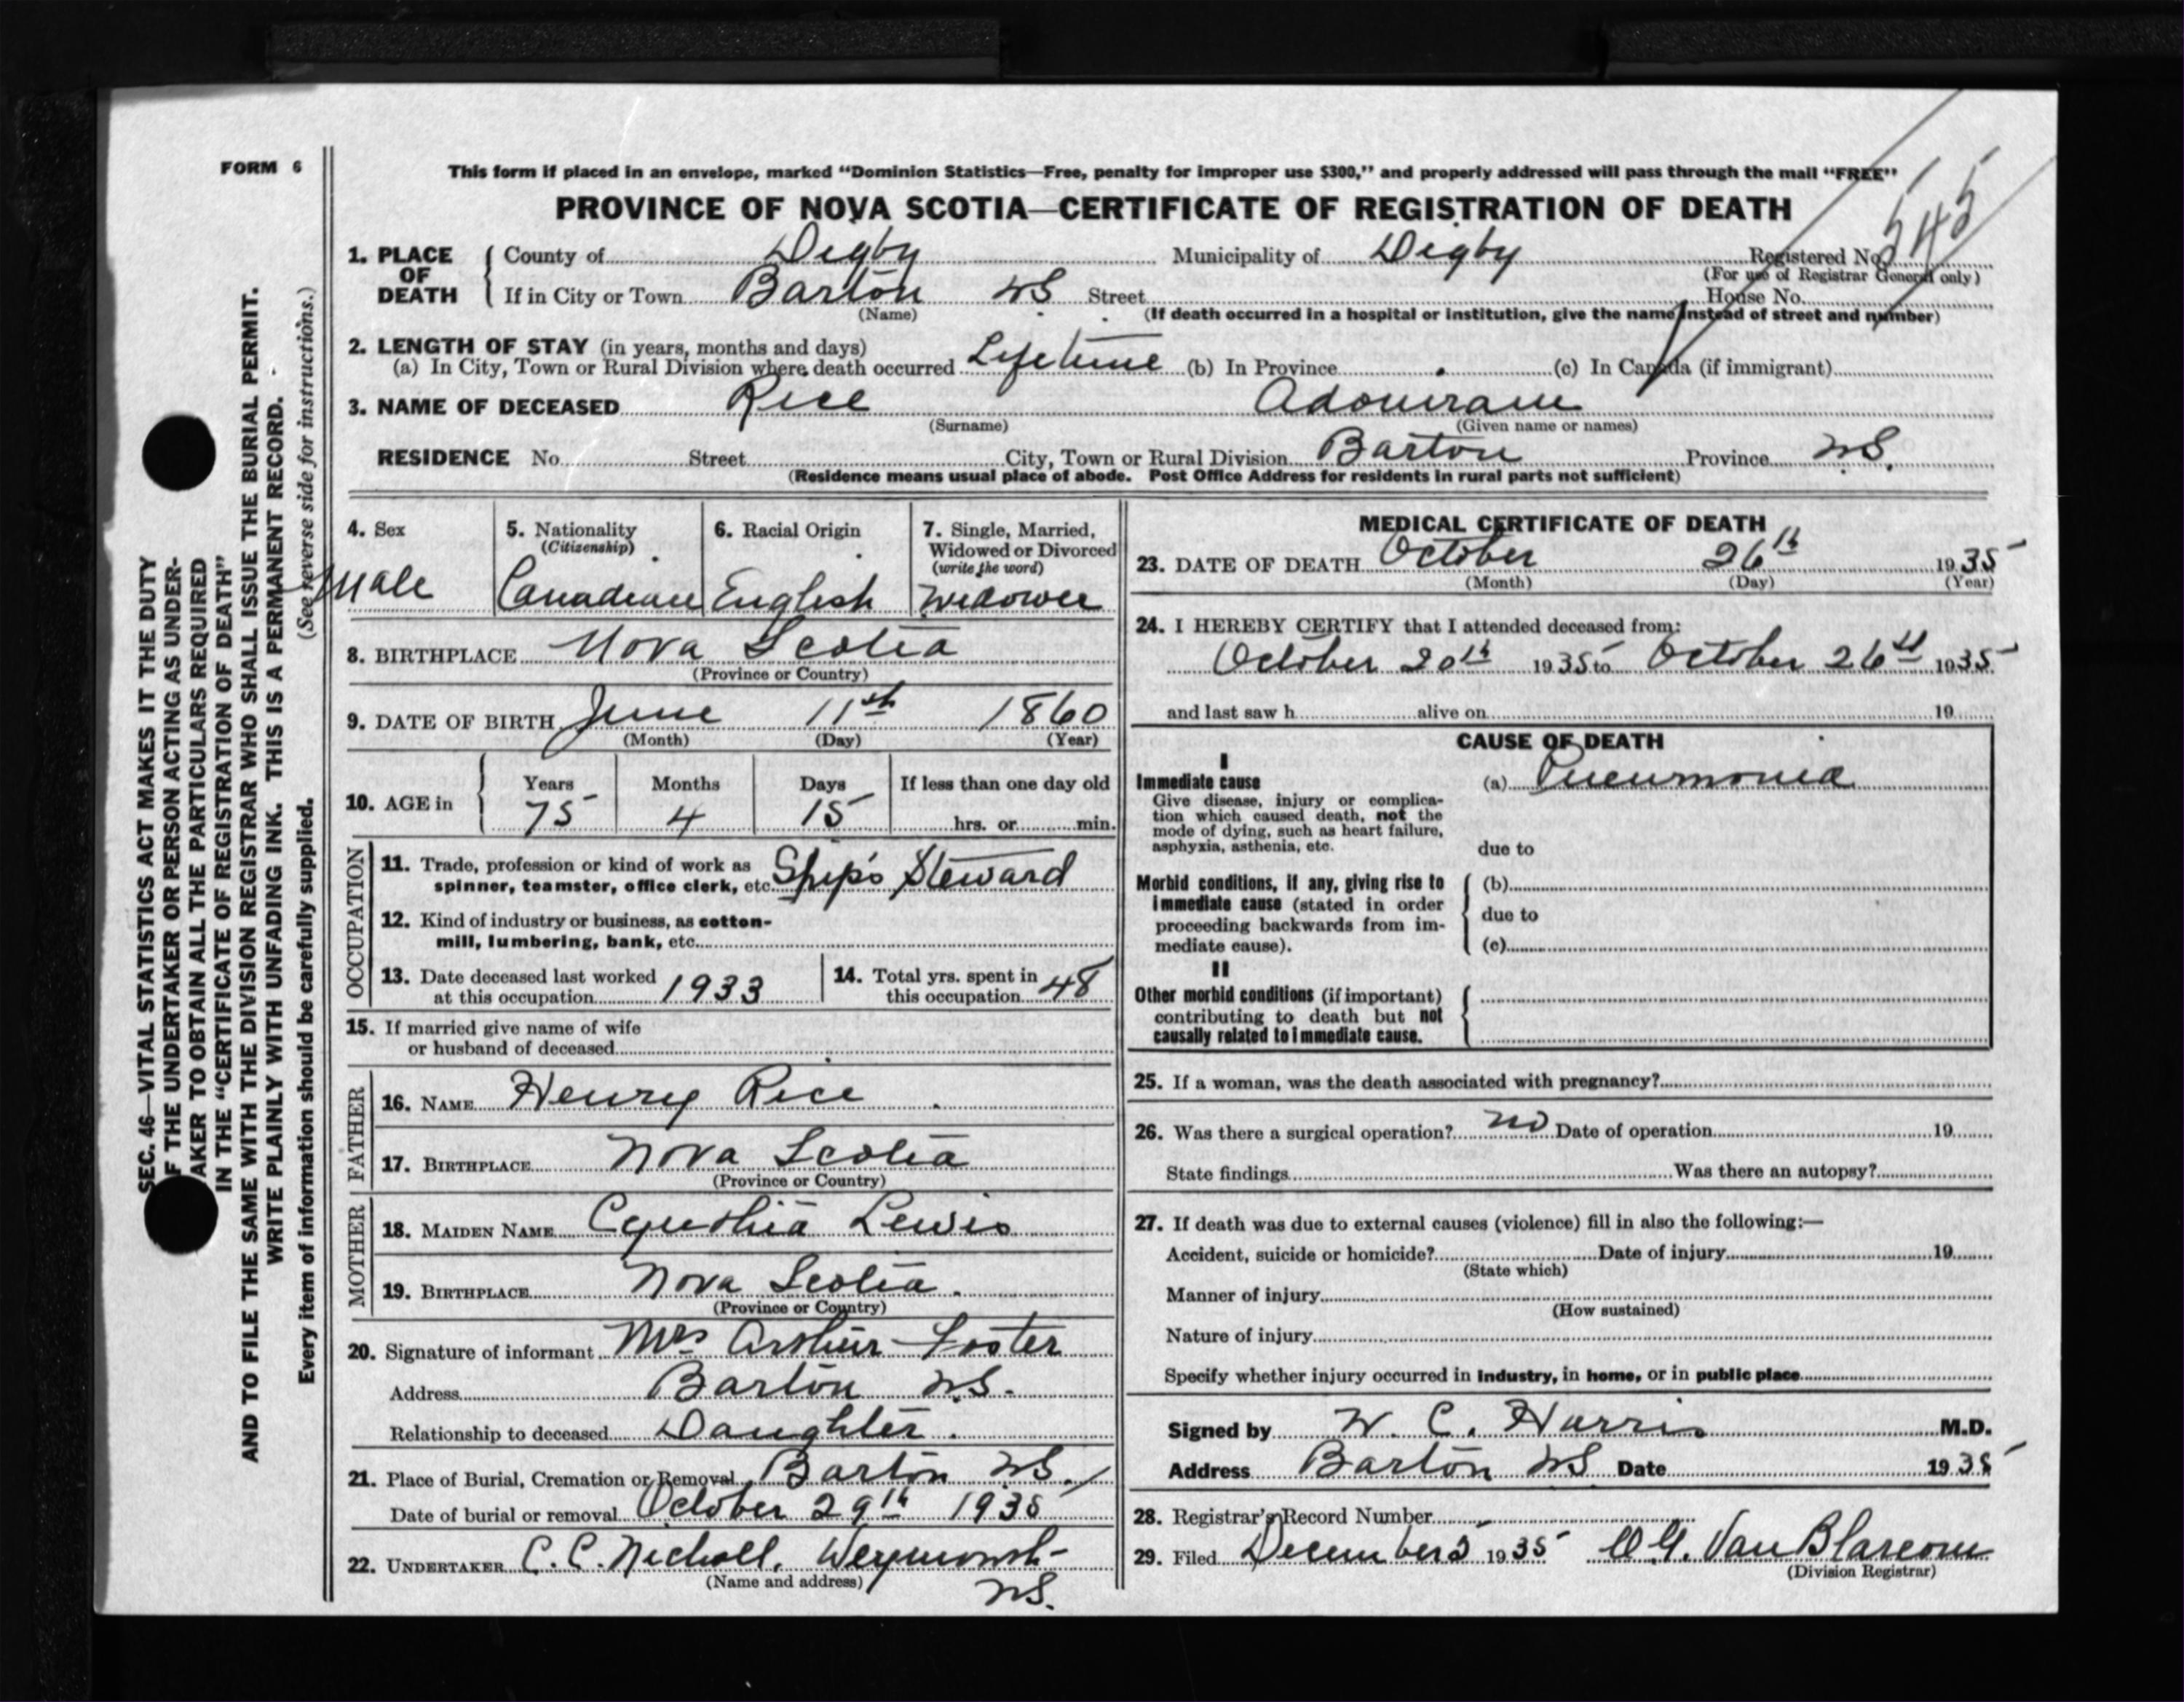 FORM 6
This form if placed in an envelope, marked “Dominion Statistics—Free, penalty for improper use $300,” and properly addressed will pass through the mail “FREE”
PROVINCE OF NOVA SCOTIA—CERTIFICATE OF REGISTRATION OF DEATH
1. PLACE OF DEATH County of Digby Municipality of Digby Registered No. 545
(For use of Registrar General only)
If in City or Town Barton NS Street House No.
(Name) (If death occurred in a hospital or institution, give the name instead of street and number)
2. LENGTH OF STAY (in years, months and days)
(a) In City, Town or Rural Division where death occurred Lifetime (b) In Province (c) In Canada (if immigrant)
3. NAME OF DECEASED Rice Adoniram
(Surname) (Given name or names)
RESIDENCE No. Street City, Town or Rural Division Barton Province NS.
(Residence means usual place of abode. Post Office Address for residents in rural parts not sufficient)
4. Sex
Male
5. Nationality
(Citizenship)
Canadian
6. Racial Origin
English
7. Single, Married,
Widowed or Divorced
(write the word)
Widower
8. BIRTHPLACE Nova Scotia
(Province or Country)
9. DATE OF BIRTH June 11th 1860
(Month) (Day) (Year)
10. AGE in Years Months Days If less than one day old
75 4 15 hrs. or min.
OCCUPATION
11. Trade, profession or kind of work as
spinner, teamster, office clerk, etc. Ship's Steward
12. Kind of industry or business, as cotton-
mill, lumbering, bank, etc.
13. Date deceased last worked
at this occupation 1933
14. Total yrs. spent in
this occupation 48
15. If married give name of wife
or husband of deceased
FATHER
16. NAME Henry Rice
17. BIRTHPLACE Nova Scotia
(Province or Country)
MOTHER
18. MAIDEN NAME Cynthia Lewis
19. BIRTHPLACE Nova Scotia.
(Province or Country)
20. Signature of informant Mrs Arthur Foster
Address Barton N.S.
Relationship to deceased Daughter.
21. Place of Burial, Cremation or Removal Barton NS.
Date of burial or removal October 29th 1935
22. UNDERTAKER C. C. Nicholl, Weymouth
(Name and address) NS.
MEDICAL CERTIFICATE OF DEATH
23. DATE OF DEATH October 26th 1935
(Month) (Day) (Year)
24. I HEREBY CERTIFY that I attended deceased from:
October 20th 1935 to October 26th 1935
and last saw h alive on 19
CAUSE OF DEATH
I
Immediate cause (a) Pneumonia
Give disease, injury or complica-
tion which caused death, not the
mode of dying, such as heart failure,
asphyxia, asthenia, etc. due to
Morbid conditions, if any, giving rise to (b)
immediate cause (stated in order due to
proceeding backwards from im-
mediate cause). (c)
II
Other morbid conditions (if important)
contributing to death but not
causally related to immediate cause.
25. If a woman, was the death associated with pregnancy?
26. Was there a surgical operation? no Date of operation 19
State findings Was there an autopsy?
27. If death was due to external causes (violence) fill in also the following:—
Accident, suicide or homicide? Date of injury 19
(State which)
Manner of injury
(How sustained)
Nature of injury
Specify whether injury occurred in industry, in home, or in public place
Signed by W. C. Harris M.D.
Address Barton NS Date 1935
28. Registrar's Record Number
29. Filed December 5 1935 Van Blarcom
(Division Registrar)
SEC. 46—VITAL STATISTICS ACT MAKES IT THE DUTY
F THE UNDERTAKER OR PERSON ACTING AS UNDER-
AKER TO OBTAIN ALL THE PARTICULARS REQUIRED
IN THE “CERTIFICATE OF REGISTRATION OF DEATH”
AND TO FILE THE SAME WITH THE DIVISION REGISTRAR WHO SHALL ISSUE THE BURIAL PERMIT.
WRITE PLAINLY WITH UNFADING INK. THIS IS A PERMANENT RECORD.
Every item of information should be carefully supplied. (See reverse side for instructions.)